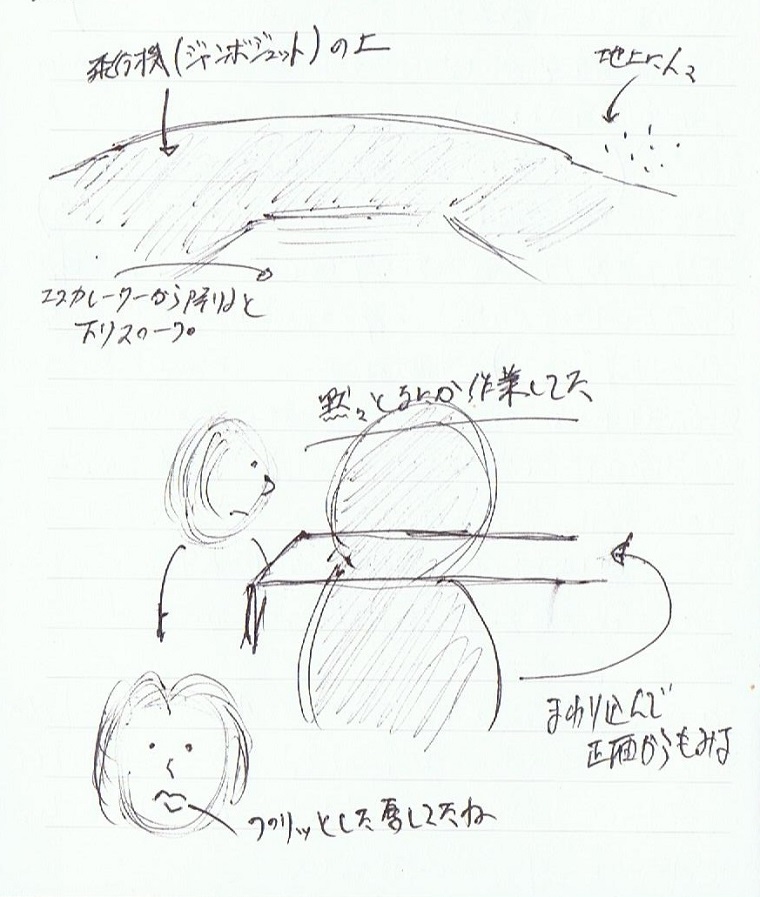 飛行機(ジャンボジェット)の上
地上に人々
エスカレーターから降りると
下りスロープ。
黙々となにか作業してた
まわり込んで
正面からもみる
プリッとした唇してたね